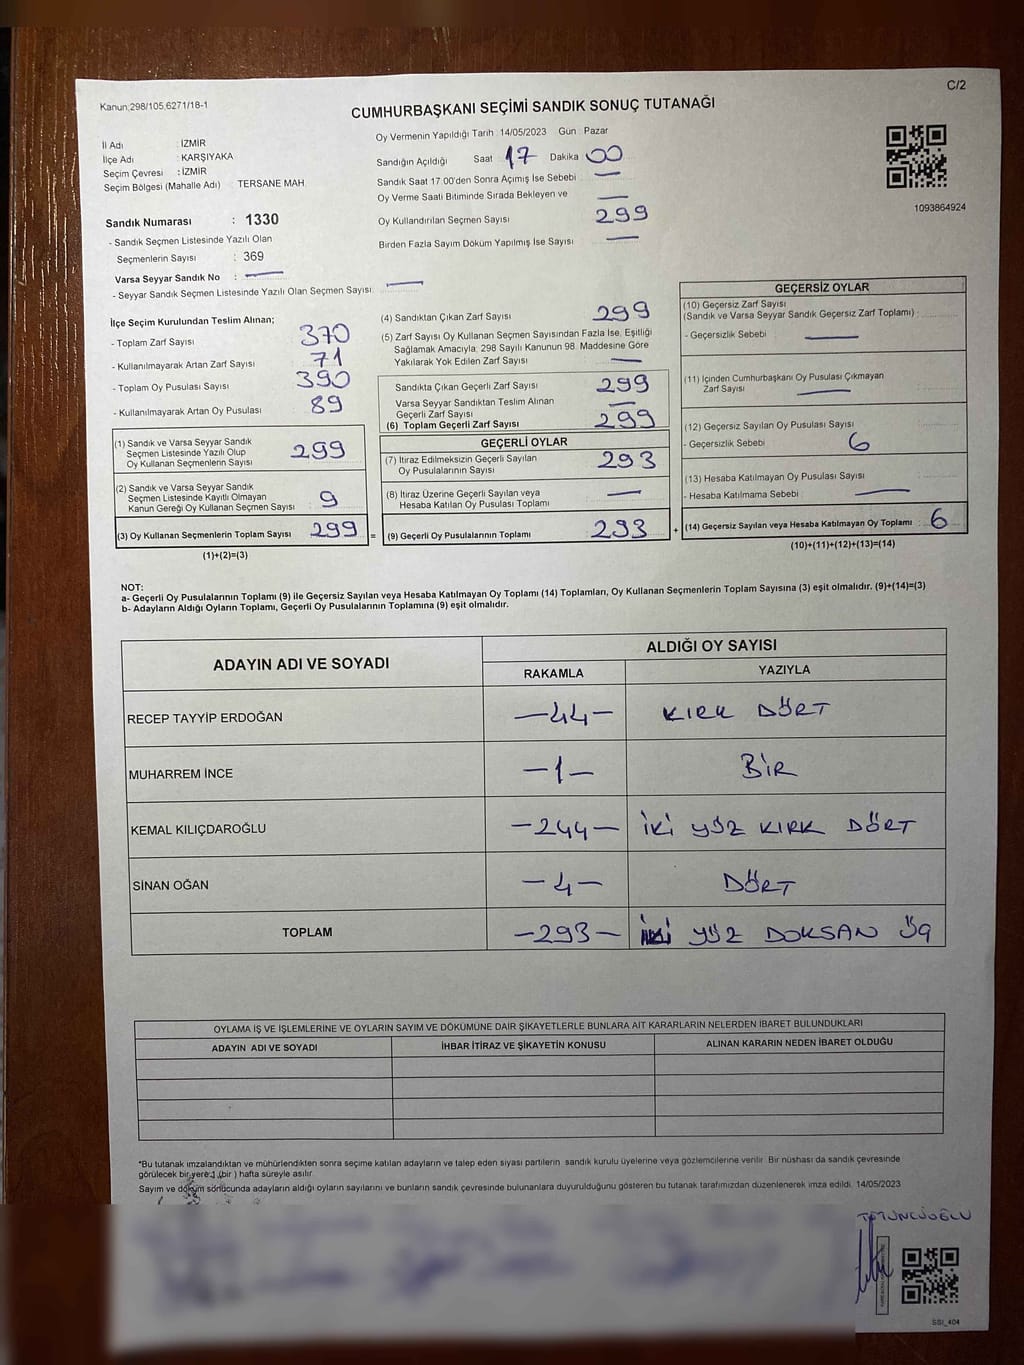 C/2
Kanun;298/105,6271/18-1
CUMHURBAŞKANI SEÇİMİ SANDIK SONUÇ TUTANAĞI
İl Adı : İZMİR
İlçe Adı : KARŞIYAKA
Seçim Çevresi : İZMİR
Seçim Bölgesi (Mahalle Adı) TERSANE MAH.
Oy Vermenin Yapıldığı Tarih 14/05/2023 Gün Pazar
Sandığın Açıldığı Saat 17 Dakika 00
Sandık Saat 17.00'den Sonra Açılmış İse Sebebi —
Oy Verme Saati Bitiminde Sırada Bekleyen ve —
Oy Kullandırılan Seçmen Sayısı 299
Birden Fazla Sayım Döküm Yapılmış İse Sayısı —
1093864924
Sandık Numarası : 1330
- Sandık Seçmen Listesinde Yazılı Olan
Seçmenlerin Sayısı : 369
Varsa Seyyar Sandık No : —
- Seyyar Sandık Seçmen Listesinde Yazılı Olan Seçmen Sayısı: —
İlçe Seçim Kurulundan Teslim Alınan;
- Toplam Zarf Sayısı 370
- Kullanılmayarak Artan Zarf Sayısı 71
- Toplam Oy Pusulası Sayısı 390
- Kullanılmayarak Artan Oy Pusulası 89
(1) Sandık ve Varsa Seyyar Sandık
Seçmen Listesinde Yazılı Olup
Oy Kullanan Seçmenlerin Sayısı 299
(2) Sandık ve Varsa Seyyar Sandık
Seçmen Listesinde Kayıtlı Olmayan
Kanun Gereği Oy Kullanan Seçmen Sayısı 9
(3) Oy Kullanan Seçmenlerin Toplam Sayısı 299 =
(1)+(2)=(3)
(4) Sandıktan Çıkan Zarf Sayısı 299
(5) Zarf Sayısı Oy Kullanan Seçmen Sayısından Fazla İse, Eşitliği
Sağlamak Amacıyla, 298 Sayılı Kanunun 98. Maddesine Göre
Yakılarak Yok Edilen Zarf Sayısı —
Sandıkta Çıkan Geçerli Zarf Sayısı 299
Varsa Seyyar Sandıktan Teslim Alınan
Geçerli Zarf Sayısı —
(6) Toplam Geçerli Zarf Sayısı 299
GEÇERLİ OYLAR
(7) İtiraz Edilmeksizin Geçerli Sayılan
Oy Pusulalarının Sayısı 293
(8) İtiraz Üzerine Geçerli Sayılan veya
Hesaba Katılan Oy Pusulası Toplamı —
(9) Geçerli Oy Pusulalarının Toplamı 293 +
GEÇERSİZ OYLAR
(10) Geçersiz Zarf Sayısı
(Sandık ve Varsa Seyyar Sandık Geçersiz Zarf Toplamı) :
- Geçersizlik Sebebi —
(11) İçinden Cumhurbaşkanı Oy Pusulası Çıkmayan
Zarf Sayısı —
(12) Geçersiz Sayılan Oy Pusulası Sayısı
- Geçersizlik Sebebi 6
(13) Hesaba Katılmayan Oy Pusulası Sayısı
- Hesaba Katılmama Sebebi —
(14) Geçersiz Sayılan veya Hesaba Katılmayan Oy Toplamı : 6
(10)+(11)+(12)+(13)=(14)
NOT:
a- Geçerli Oy Pusulalarının Toplamı (9) ile Geçersiz Sayılan veya Hesaba Katılmayan Oy Toplamı (14) Toplamları, Oy Kullanan Seçmenlerin Toplam Sayısına (3) eşit olmalıdır. (9)+(14)=(3)
b- Adayların Aldığı Oyların Toplamı, Geçerli Oy Pusulalarının Toplamına (9) eşit olmalıdır.
ADAYIN ADI VE SOYADI ALDIĞI OY SAYISI
RAKAMLA YAZIYLA
RECEP TAYYİP ERDOĞAN —44— KIRK DÖRT
MUHARREM İNCE —1— BİR
KEMAL KILIÇDAROĞLU —244— İKİ YÜZ KIRK DÖRT
SİNAN OĞAN —4— DÖRT
TOPLAM —293— İKİ YÜZ DOKSAN ÜÇ
OYLAMA İŞ VE İŞLEMLERİNE VE OYLARIN SAYIM VE DÖKÜMÜNE DAİR ŞİKAYETLERLE BUNLARA AİT KARARLARIN NELERDEN İBARET BULUNDUKLARI
ADAYIN ADI VE SOYADI İHBAR İTİRAZ VE ŞİKAYETİN KONUSU ALINAN KARARIN NEDEN İBARET OLDUĞU
*Bu tutanak imzalandıktan ve mühürlendikten sonra seçime katılan adayların ve talep eden siyasi partilerin sandık kurulu üyelerine veya gözlemcilerine verilir. Bir nüshası da sandık çevresinde
görülecek bir yere 1 (bir) hafta süreyle asılır.
Sayım ve döküm sonucunda adayların aldığı oyların sayılarını ve bunların sandık çevresinde bulunanlara duyurulduğunu gösteren bu tutanak tarafımızdan düzenlenerek imza edildi. 14/05/2023
SSI_404